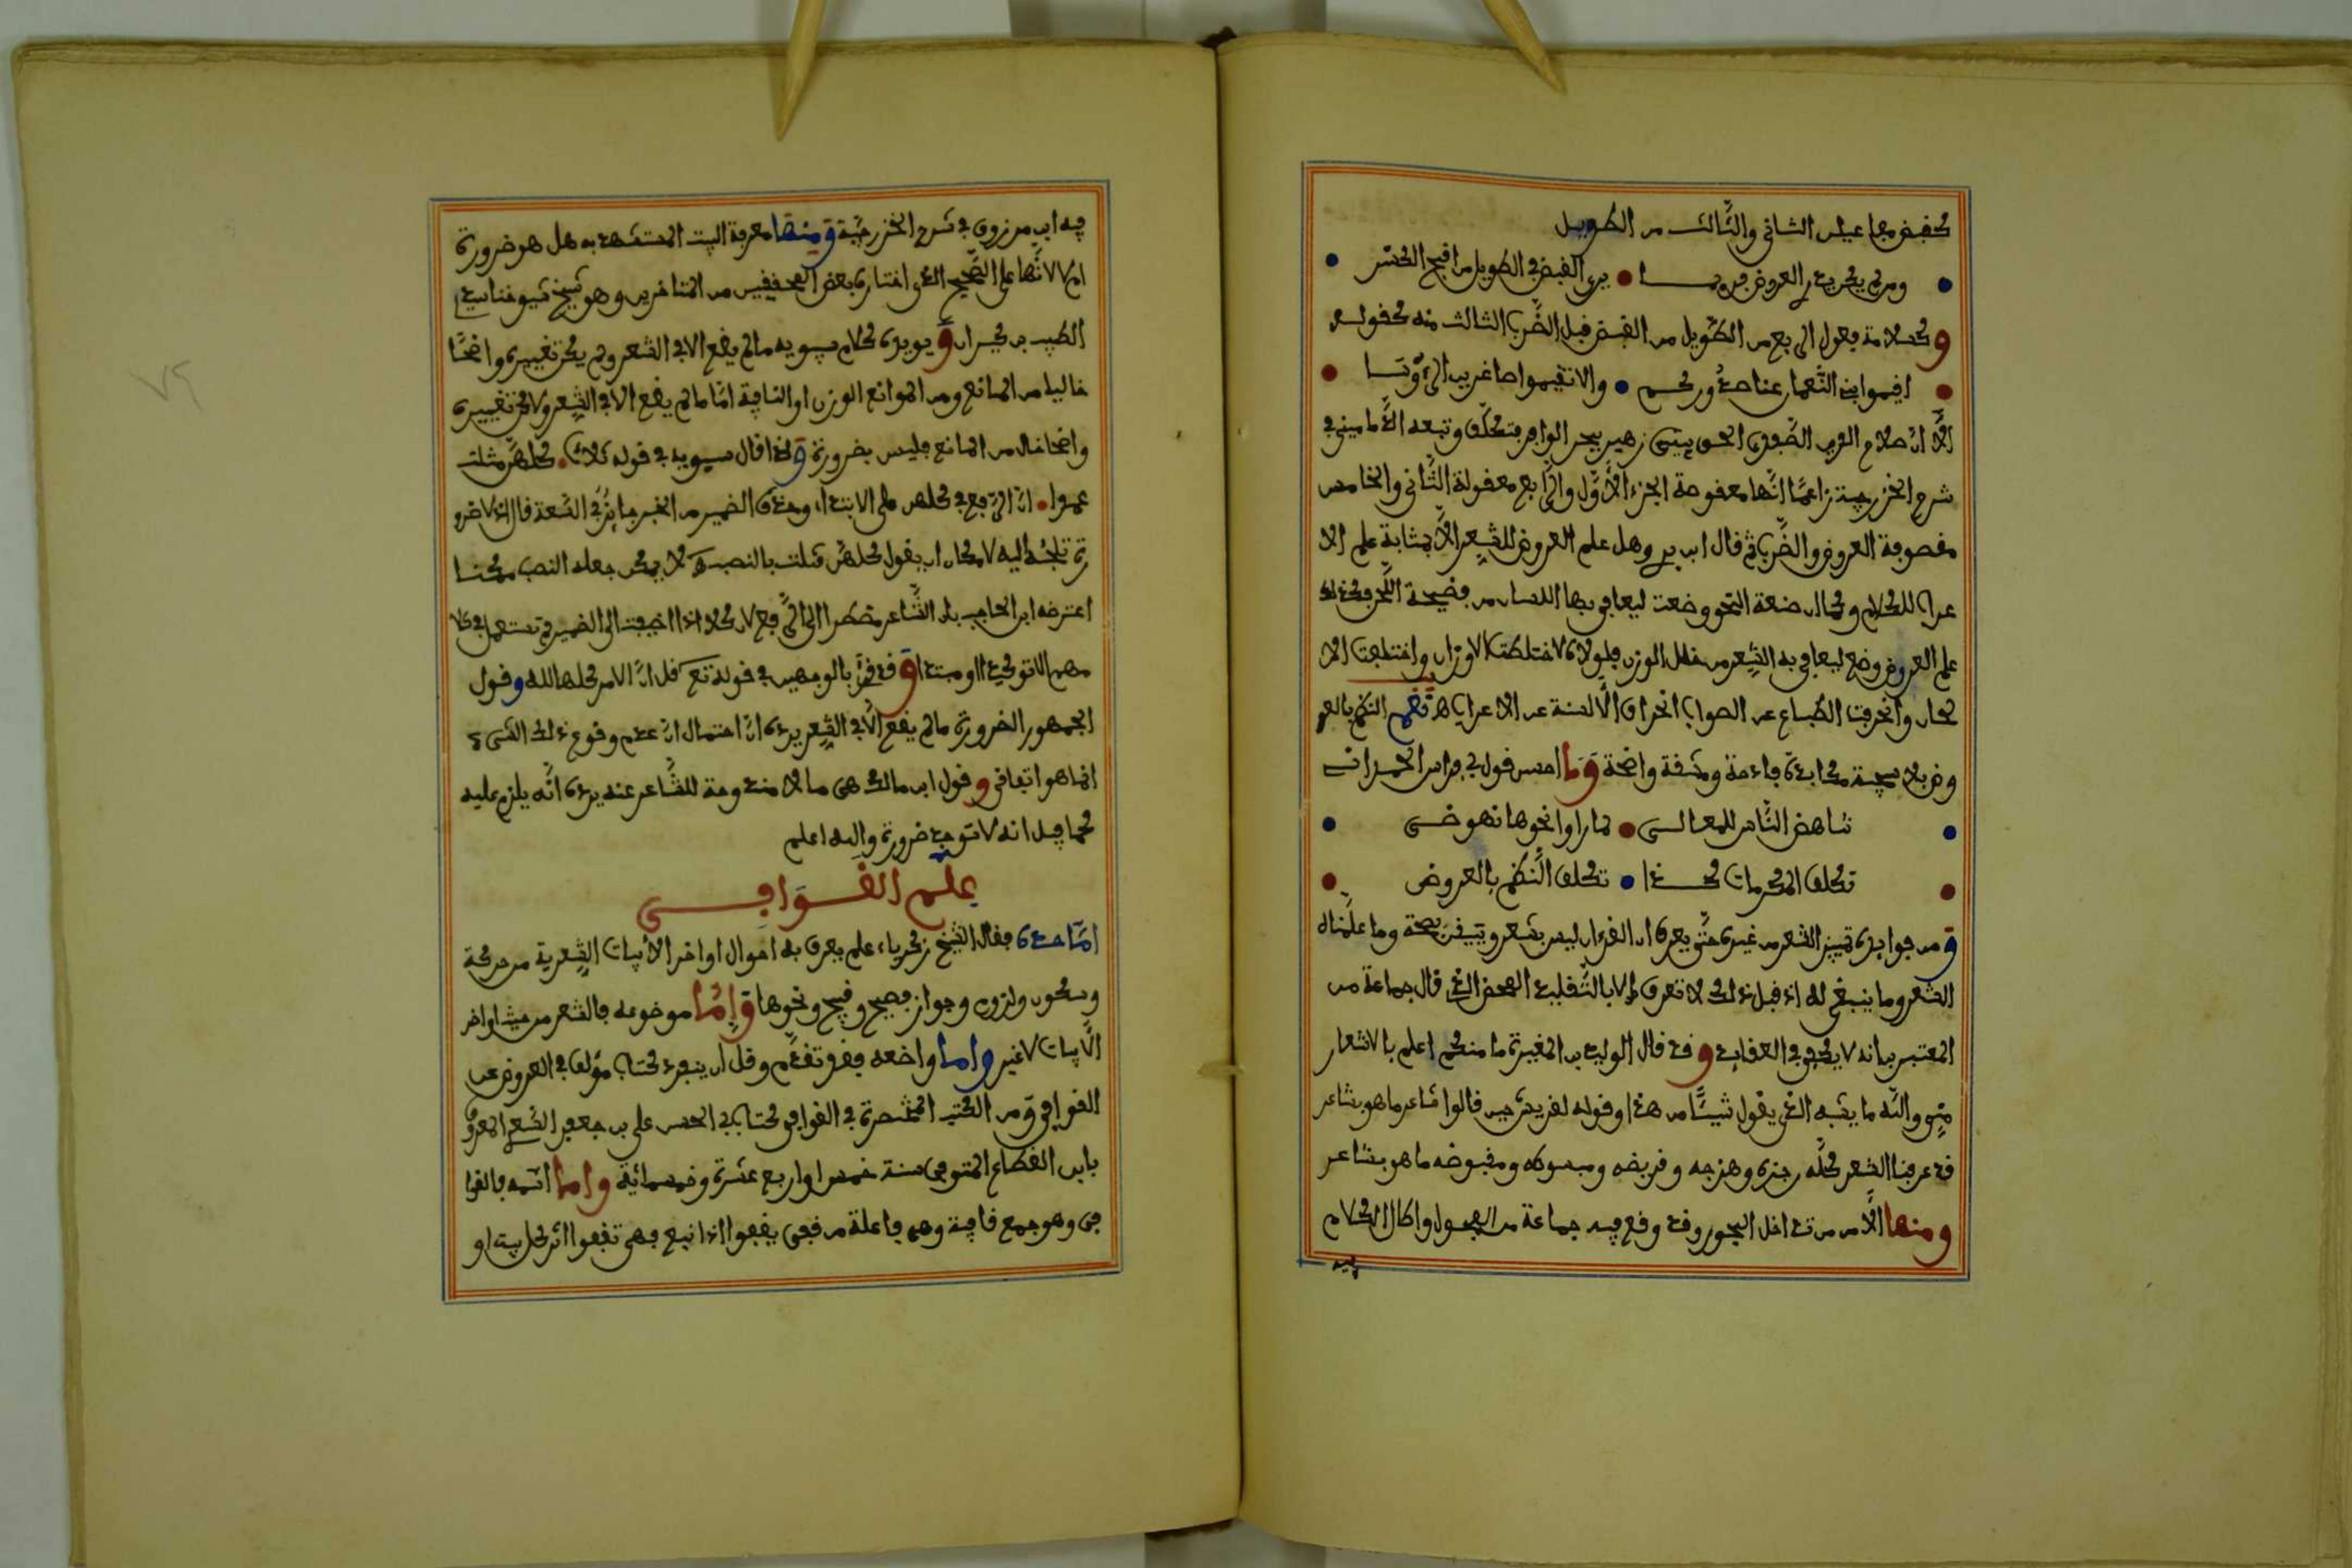 كقبض مفاعيلن الثاني والثالث من الطويل
ومن لم يكن يدر العروض فربما • يرى القبض في الطويل من اقبح الكسر
وكسلامة فعول الرابع من الطويل من القبض قبل الضرب الثالث منه كقوله
اقيموا بني النعمان عنا صدوركم • والا تقيموا صاغرين الرؤسا
الا ان صلاح الدين الصفدي الحق بيتي زهير ببحر الوافر وتبعه الدماميني في
شرح الخزرجية زاعما انها معقوصة الجزء الاول والرابع معقولة الثاني والخامس
مقصومة العروض والضرب ثم قال ابن بري وهل علم العروض للشعر الا بمثابة علم الا
عراب للكلام وكما ان صنعة النحو وضعت ليعافى بها اللسان من فضيحة اللحن فكذلك
علم العروض وضع ليعافى به الشعر من خلل الوزن فلولاه لاختلطت الاوزان واختلفت الالـ
ـحان وانحرفت الطباع عن الصواب انحراف الالسنة عن الاعراب اهـ فنعم النظم بالعر
وض بلا سجية مكابدة فادحة ومشقة واضحة وما احسن قول ابي فراس الحمداني
تناهض الناس للمعالي • لما راوا نحوها نهوضي
تكلفوا المكرمات كدا • تكلف النظم بالعروض
ومن فوايده تمييز الشعر من غيره حتى يعرف ان القرءان ليس بشعر ويتيقن بصحة وما علمناه
الشعر وما ينبغي له اذ قبل ذلك لا نعرف الا بالتقليد المحض الذي قال جماعة من
المعتبرين انه لا يكفي في العقايد وقد قال الوليد بن المغيرة ما منكم اعلم بالاشعار
مني والله ما يشبه الذي يقول شيئا من هذا وقوله لقريش حين قالوا شاعر ما هو بشاعر
قد عرفنا الشعر كله رجزه وهزجه وقريضه ومبسوطه ومقبوضه ما هو بشاعر
ومنها الامن من تداخل البحور وقد وقع فيه جماعة من الفحول واطال الكلام
فيه
فيه ابن مرزوق في شرح الخزرجية ومنها معرفة البيت المستشهد به هل هو ضرورة
ام لا لانها على الصحيح الذي اختاره بعض المحققين من المتاخرين وهو شيخ شيوخنا سيدي
الطيب بن كيران ويويده كلام سيبويه ما لم يقع الا في الشعر ولم يكن تغييره واضحا
خاليا من المانع ومن الموانع الوزن او القافية اما ما لم يقع الا في الشعر ولاكن تغييره
واضحا خال من المانع فليس بضرورة ولذا قال سيبويه في قوله ثلاث كلهن قتلت
عمدا • ان الرفع في كلهن على الابتداء وحذف الضمير من الخبر جائز في السعة قال اذ لا ضرو
رة تلجئه اليه لامكان ان يقول كلهن قتلت بالنصب اهـ لا يمكن جعله النصب ممكنا
اعترضه ابن الحاجب بان الشاعر مضطر الى الرفع لان كلا اذا اضيفت الى الضمير لم تستعمل في كلا
مهم الا توكيدا او مبتدا وقد قرئ بالوجهين في قوله تع قل ان الامر كله لله وقول
الجمهور الضرورة ما لم يقع الا في الشعر يرده ان احتمال ان عدم وقوع ذلك الشيء
انما هو اتفاقي وقول ابن مالك هي ما لا مندوحة للشاعر عنه يرده انه يلزم عليه
كما قيل انه لا توجد ضرورة والله اعلم
علم القوافي
اما حده فقال الشيخ زكرياء علم يعرف به احوال اواخر الابيات الشعرية من حركة
وسكون ولزوم وجواز فصيح وقبيح ونحوها واما موضوعه فالشعر من حيث اواخر
الابيات لا غير واما واضعه فقد تقدم وقل ان ينفرد كتاب مؤلف في العروض عن
القوافي ومن الكتب المختصرة في القوافي كتاب ابي الحسن علي بن جعفر السعدي المعروف
بابن القطاع المتوفى سنة خمس او اربع عشرة وخمسمائة واما اسمه فالقوا
في وهو جمع قافية وهي فاعلة من قفى يقفوا اذا تبع فهي تقفوا اثر كل بيت او